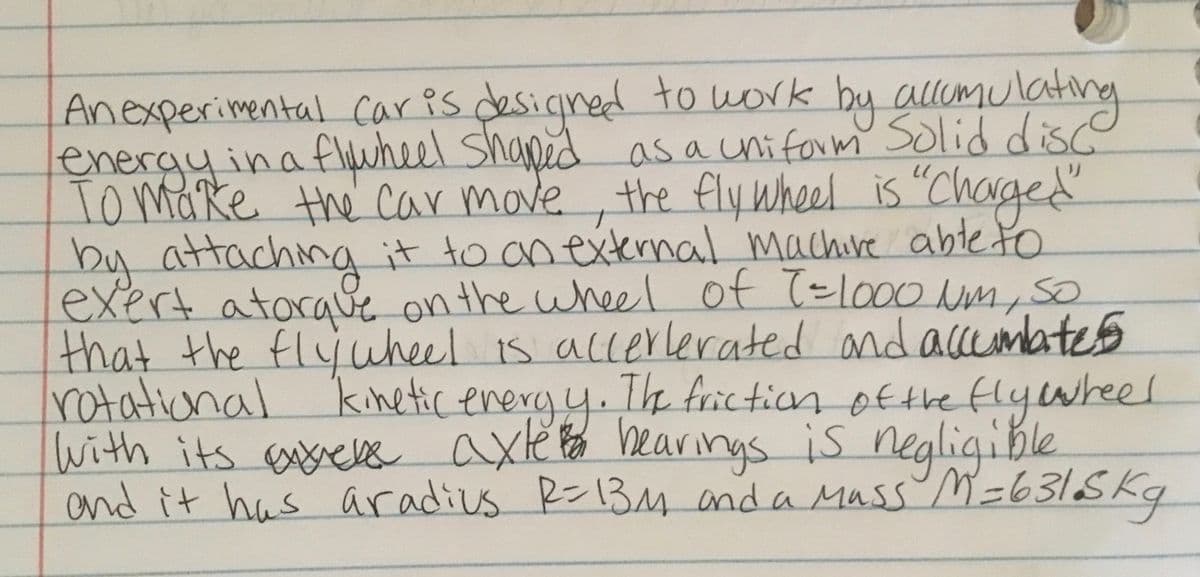 An experimental car is designed to work by accumulating
energy in a flywheel shaped as a uniform solid disc
To make the car move, the flywheel is "Charged"
by attaching it to an external machine able to
exert a torque on the wheel of τ=1000 Nm, so
that the flywheel is accerlerated and accumlates
rotational kinetic energy. The friction of the flywheel
with its axle bearings is negligible
and it has a radius R=13M and a mass M=631.5 Kg